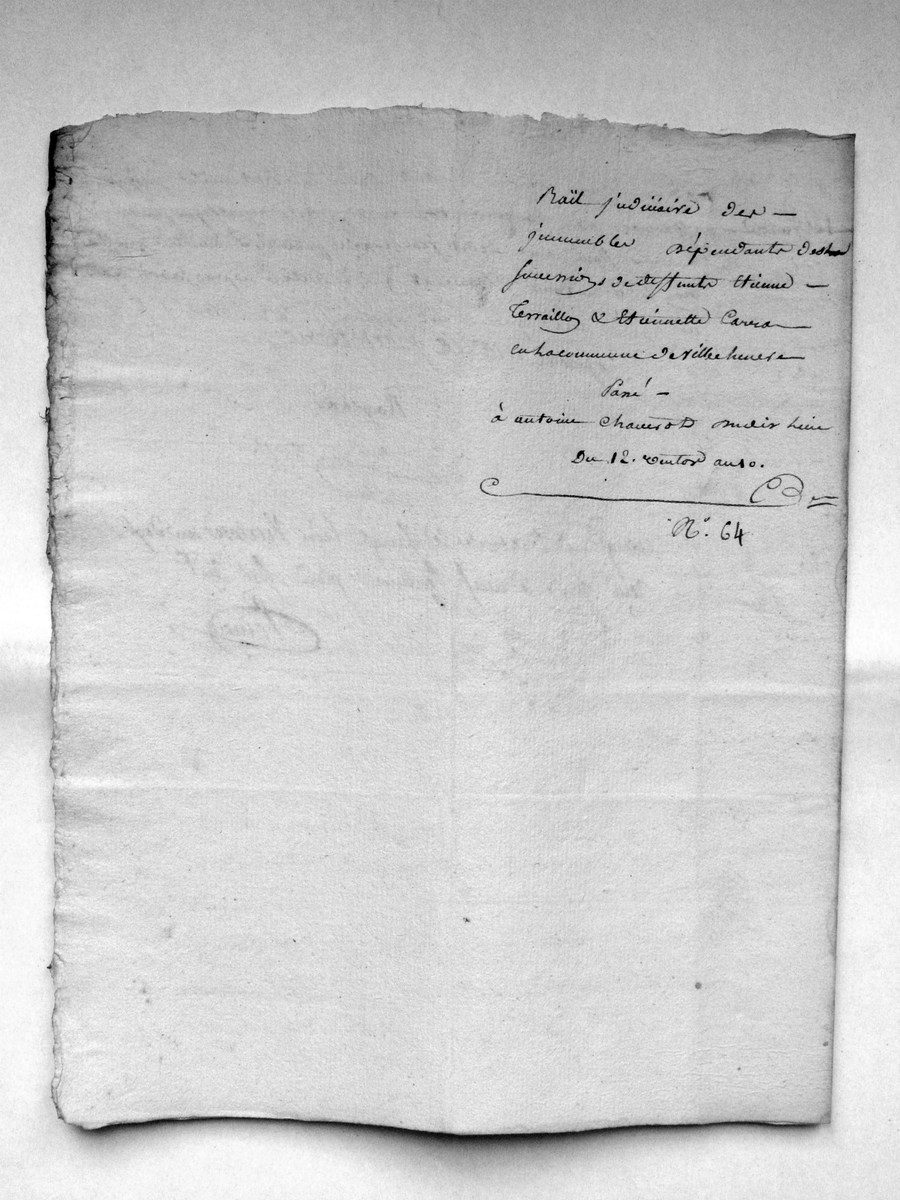 Bail judiciaire des
jmmeubles dépendants des
successions de deffunts Etienne
Terraillon & Etiennette Carra
en la commune de villechenese
Passé
à antoine Chaversot
Du 12. ventose an 10.
N°. 64